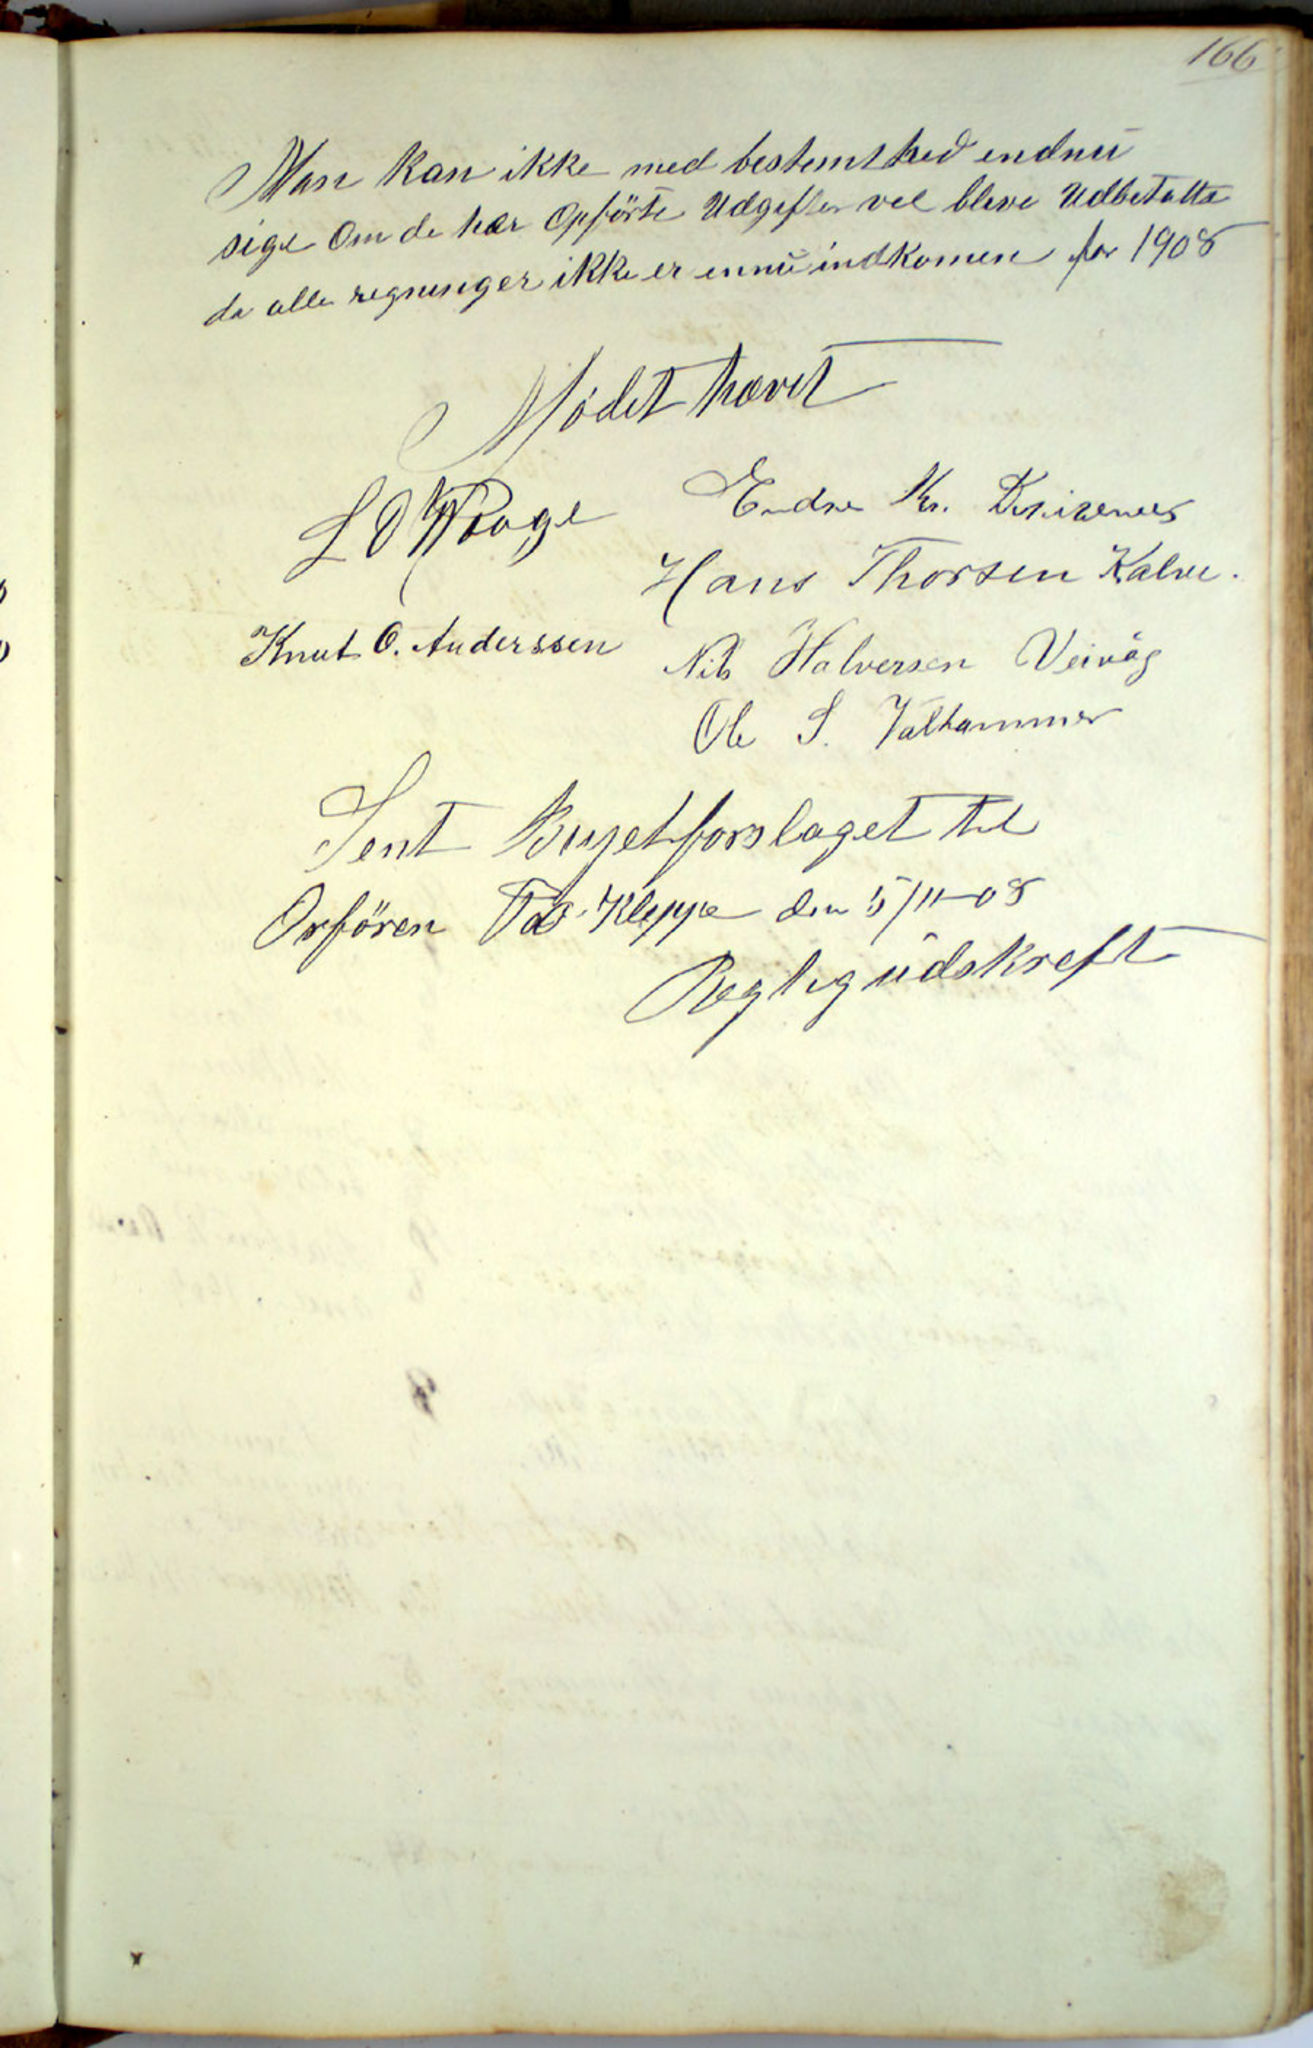 166
Man kan ikke med bestemthed endnu
sige Om de her Opførte Udgifter vel bleve Udbetalte
da alle regninger ikke er ennu indkomen for 1908
Mødet hævet
L O Waage
Endre Kr.
Hans Thorsen Kalve.
Knut O. Anderssen
Nils Halversen Veivåg
Ole S. Valhammer
Sent Bujetforslaget til
Orføren Kleppe den 5/11-08
Regtig udskreft